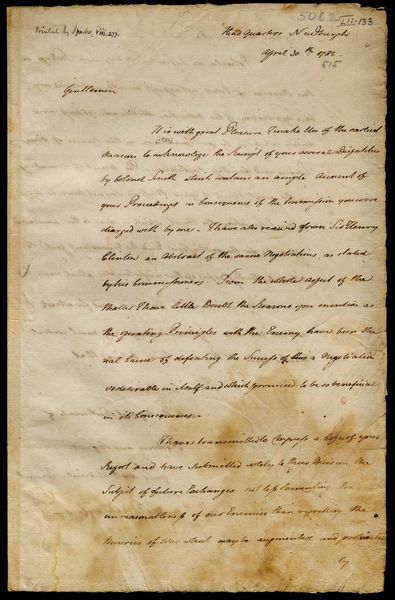 Printed by Sparks, VIII, 277.
5062
LII-133
Head Quarters Newburgh
April 30th 1782
615
Gentlemen
It is with great Pleasure I make Use of the earliest
Season to acknowledge the Receipt of your several Dispatches
by Colonel Smith which contain an ample Account of
your Proceedings in Consequence of the Commission you were
charged with by me - I have also received from Sir Henry
Clinton an Abstract of the same Negotiations, as stated
by his Commissioners. From the whole aspect of the
Matter I have little Doubt the Reasons you mention as
the operating Principles with the Enemy have been the
real Cause of defeating the Success of a Negotiation
so desirable in itself and which promised to be so beneficial
in its Consequences -
I have transmitted to Congress a Copy of your
Report and have submitted solely to their Decision the
Subject of future Exchanges not less lamenting the
unreasonableness of our Enemies than regretting the
Miseries of War which may be augmented and
by